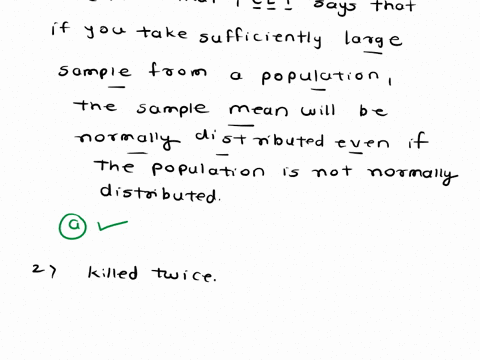 says that
if you take sufficiently large
sample from a population,
the sample mean will be
normally distributed even if
the population is not normally
distributed.
a ✓
2) killed twice.